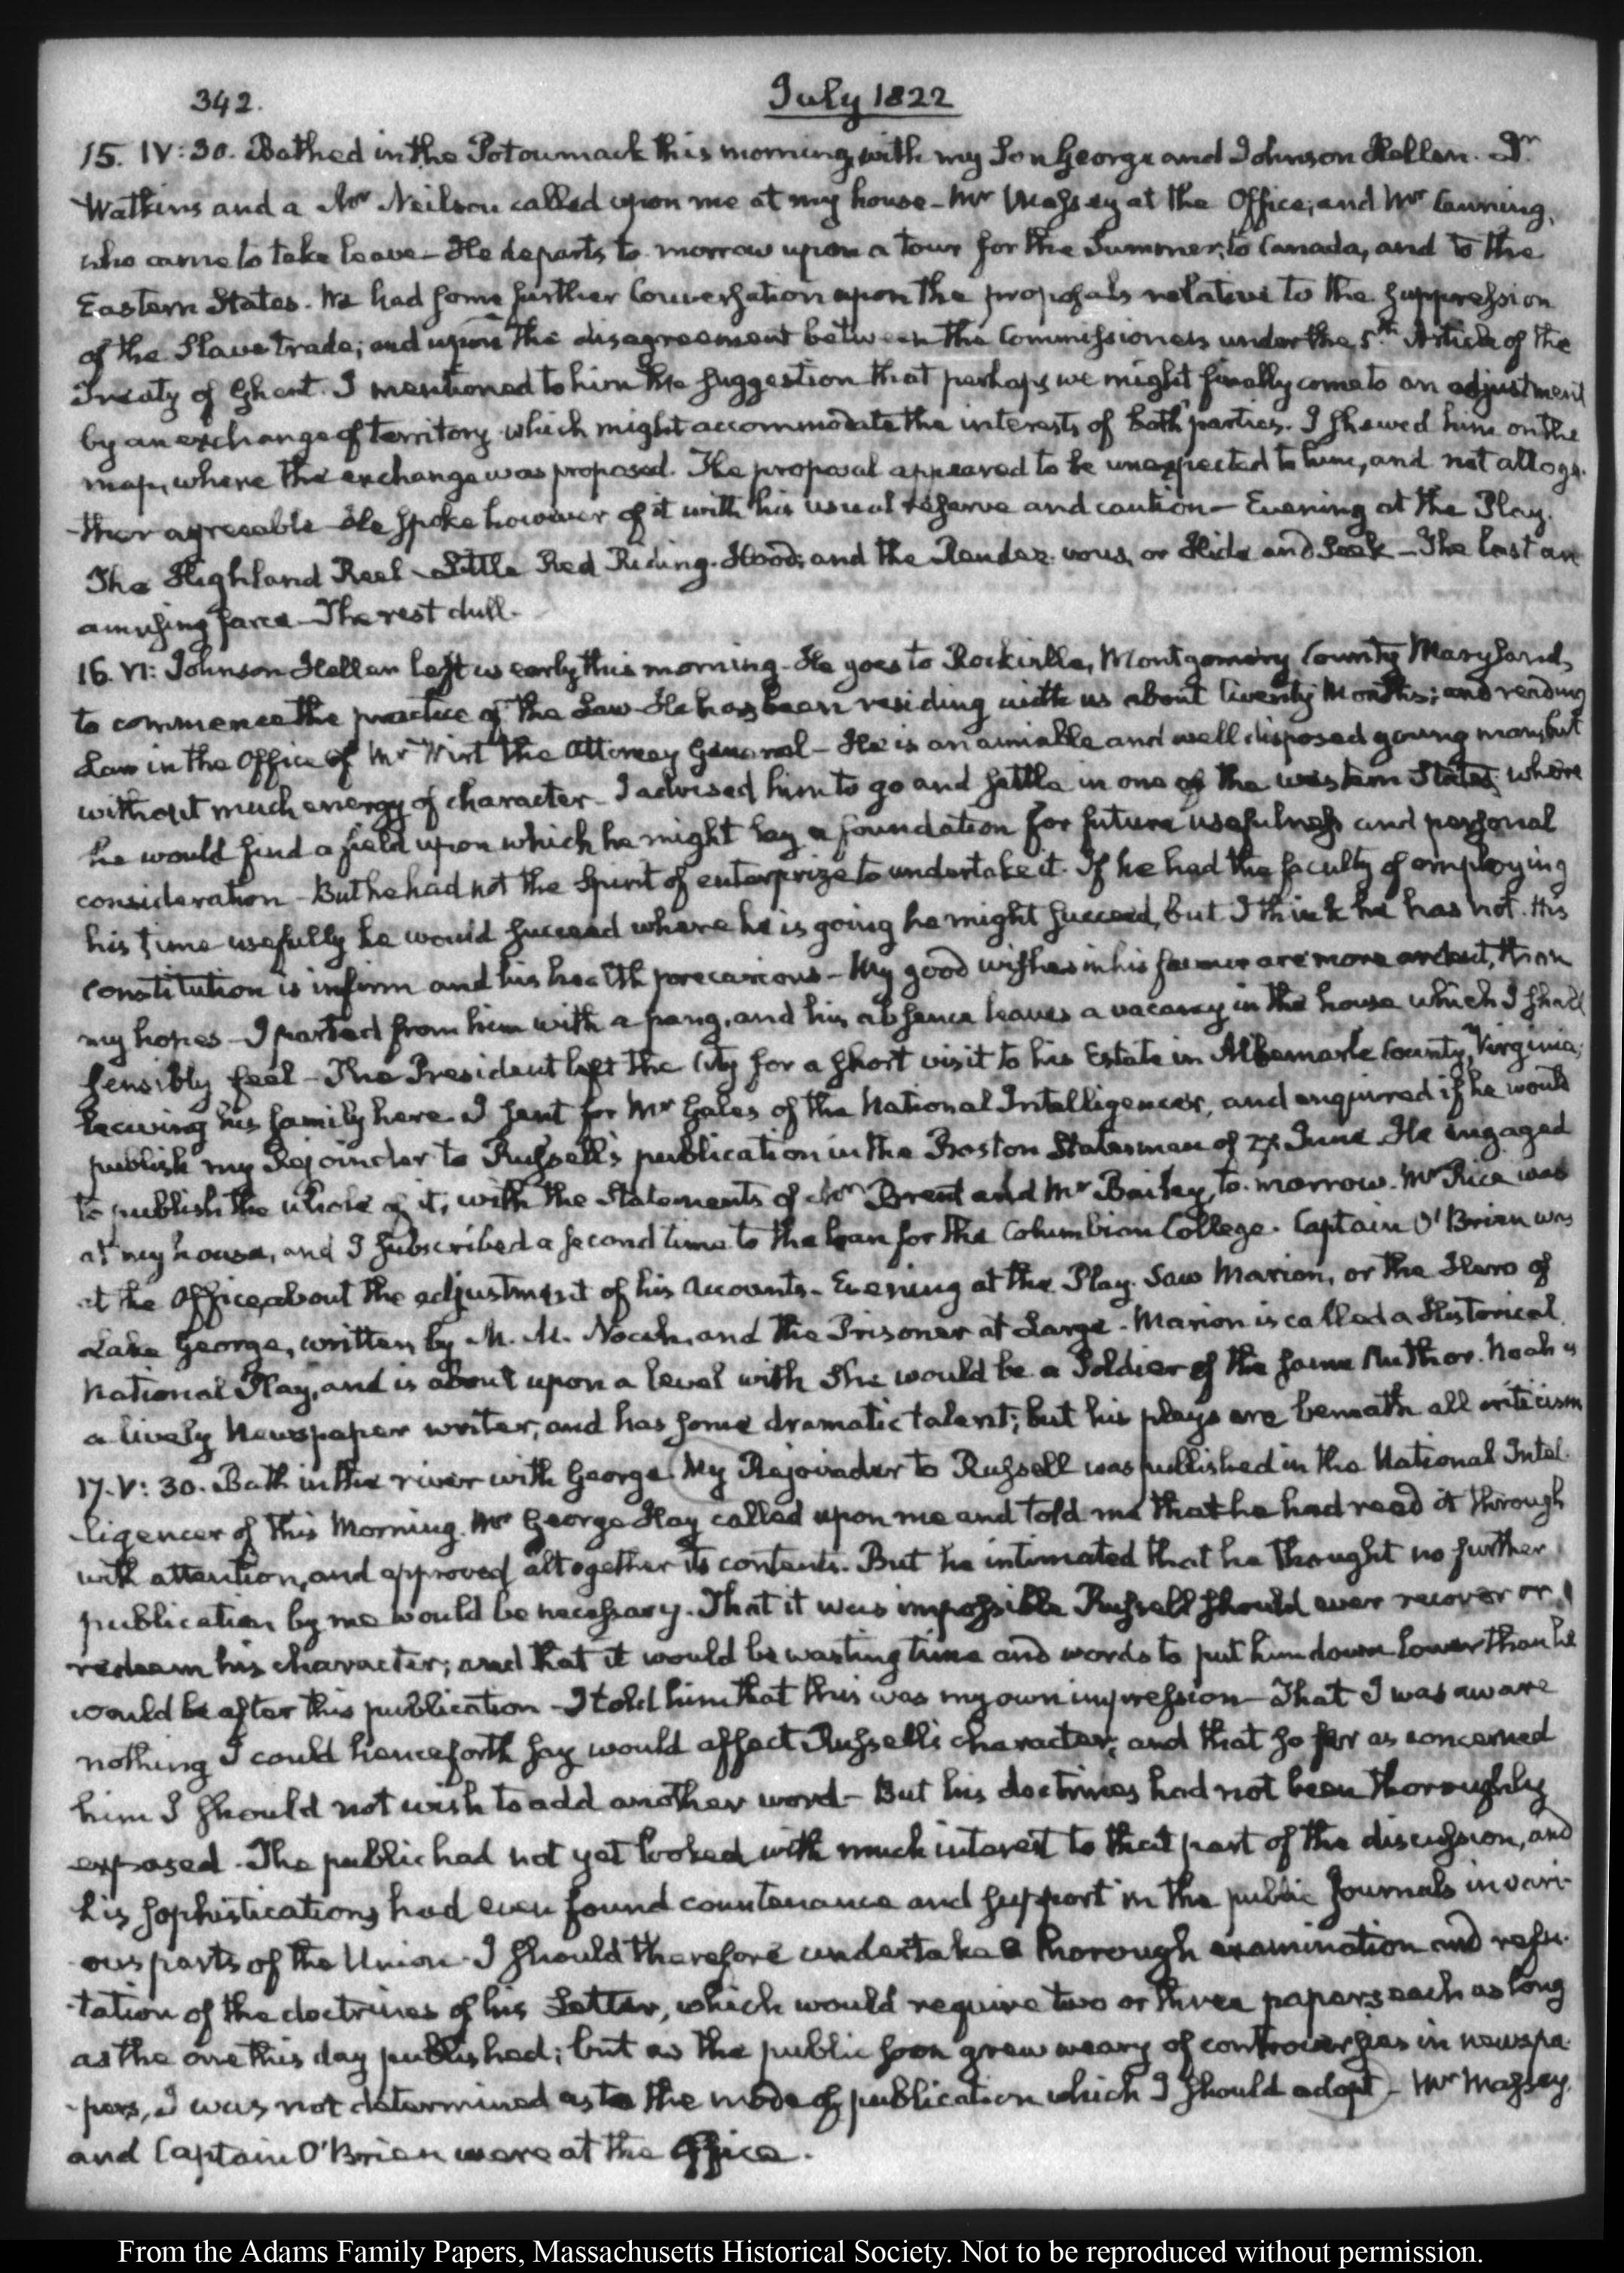 342.
July 1822
15. IV:30. Bathed in the Potowmack this morning, with my Son George and Johnson Hellen. Dr.
Watkins and a Mr Neilson called upon me at my house - Mr Massey at the Office, and Mr Canning,
who came to take leave - He departs to-morrow upon a tour for the Summer, to Canada, and to the
Eastern States. We had some further Conversation upon the proposals relative to the suppression
of the Slave trade; and upon the disagreement between the Commissioners under the 5th. Article of the
Treaty of Ghent. I mentioned to him the suggestion that perhaps we might finally come to an adjustment
by an exchange of territory which might accommodate the interests of both parties. I shewed him on the
map, where the exchange was proposed. The proposal appeared to be unexpected to him, and not altoge-
-ther agreeable - He spoke however of it with his usual reserve and caution - Evening at the Play.
The Highland Reel - Little Red Riding-Hood; and the Rendez-vous, or Hide and Seek - The last an
amusing farce - The rest dull.
16. VI: Johnson Hellen left us early this morning. He goes to Rockville, Montgomery County Maryland,
to commence the practice of the Law - He has been residing with us about twenty Months; and reading
Law in the Office of Mr Wirt the Attorney General - He is an amiable and well disposed young man, but
without much energy of character - I advised him to go and settle in one of the western States, where
he would find a field upon which he might lay a foundation for future usefulness and personal
consideration - But he had not the Spirit of enterprize to undertake it. If he had the faculty of employing
his time usefully he would succeed where he is going he might succeed, but I think he has not. His
constitution is infirm and his health precarious - My good wishes in his favour are more ardent, than
my hopes - I parted from him with a pang, and his absence leaves a vacancy in the house which I shall
sensibly feel - The President left the City for a short visit to his Estate in Albemarle County, Virginia;
leaving his family here. I sent for Mr Gales of the National Intelligencer, and enquired if he would
publish my Rejoinder to Russell's publication in the Boston Statesman of 27. June. He engaged
to publish the whole of it, with the Statements of Mr Brent and Mr Bailey, to-morrow. Mr Rice was
at my house, and I subscribed a second time to the loan for the Columbian College. Captain O'Brien was
at the Office, about the adjustment of his Accounts - Evening at the Play. Saw Marion, or the Hero of
Lake George, written by M. M. Noah, and the Prisoner at Large - Marion is called a Historical
National Play, and is about upon a level with She would be a Soldier of the same Author. Noah is
a lively Newspaper writer, and has some dramatic talent; but his plays are beneath all criticism
17. V:30. Bath in the river with George. My Rejoinder to Russell was published in the National Intel-
-ligencer of this Morning. Mr George Hay called upon me and told me that he had read it through
with attention, and approved altogether its contents. But he intimated that he thought no further
publication by me would be necessary. That it was impossible Russell should ever recover or
redeem his character; and that it would be wasting time and words to put him down lower than he
would be after this publication - I told him that this was my own impression - That I was aware
nothing I could henceforth say would affect Russell's character, and that so far as concerned
him I should not wish to add another word - But his doctrines had not been thoroughly
exposed. The public had not yet looked with much interest to that part of the discussion, and
his sophistications had even found countenance and support in the public Journals in vari-
-ous parts of the Union. I should therefore undertake a thorough examination and refu-
-tation of the doctrines of his Letter, which would require two or three papers each as long
as the one this day published; but as the public soon grew weary of controversies in newspa-
-pers, I was not determined as to the mode of publication which I should adopt - Mr Massey,
and Captain O'Brien were at the Office.
From the Adams Family Papers, Massachusetts Historical Society. Not to be reproduced without permission.